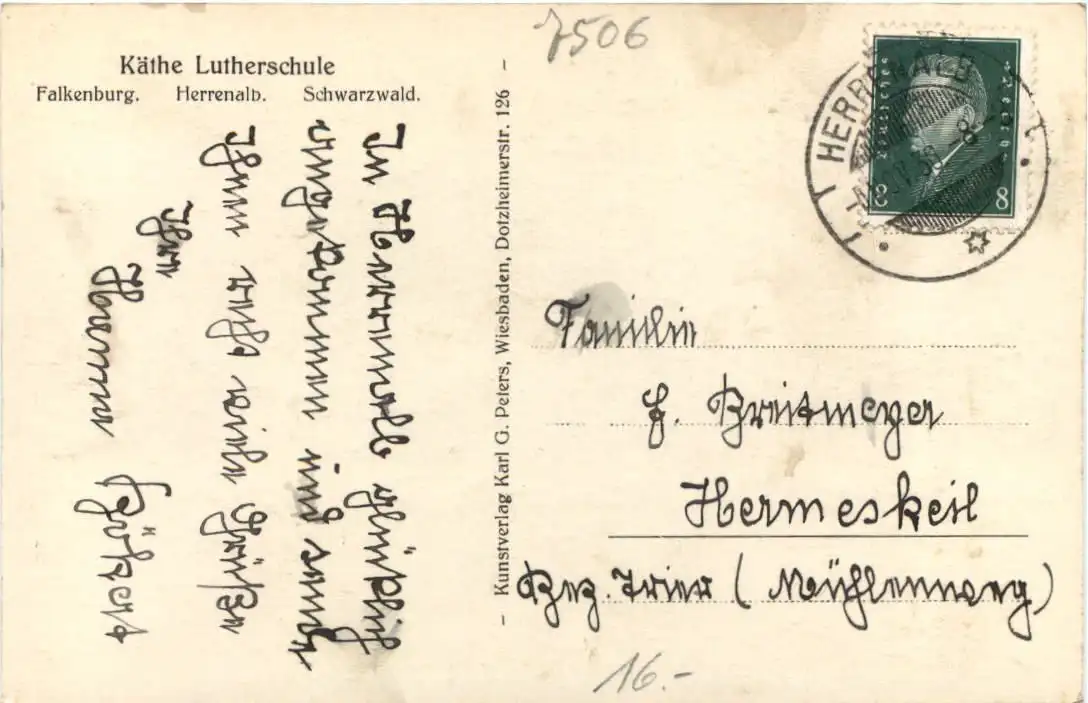 7506
Käthe Lutherschule
Falkenburg. Herrenalb. Schwarzwald.
In Herrenalb glücklich
angekommen und sende
Ihnen recht viele Grüße
Ihre
Hanne
– Kunstverlag Karl G. Peters, Wiesbaden, Dotzheimerstr. 126 –
HERRENALB
Deutsches Reich
8 8
Familie
H. Breitmeyer
Hermeskeil
Bez. Trier (Mühlenweg)
16.-